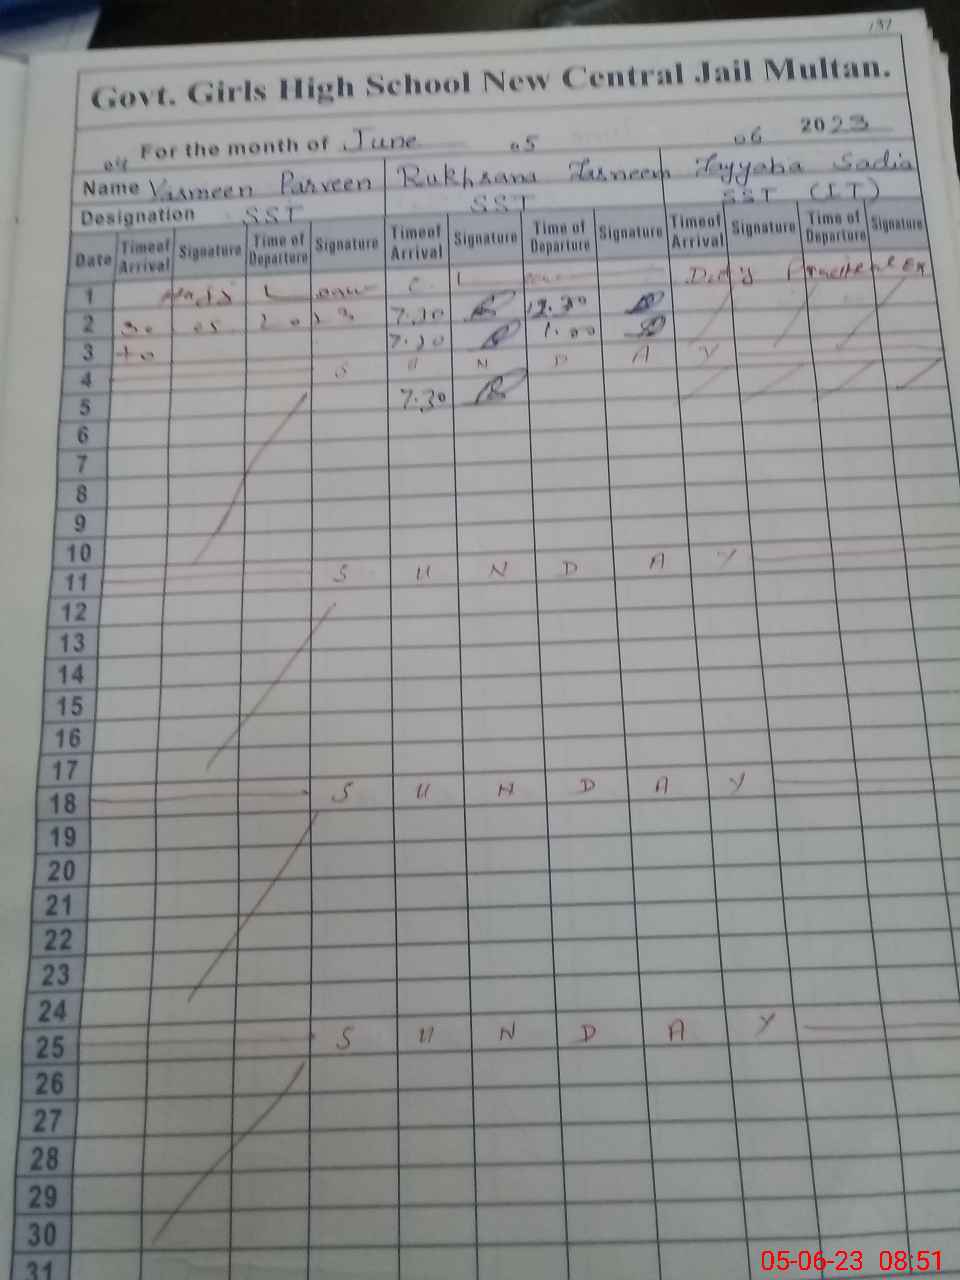 137
Govt. Girls High School New Central Jail Multan.
For the month of June 2023
04 05 06
Name Yasmeen Parveen Rukhsana Tasneem Tayyaba Sadia
Designation SST SST SST (IT)
Date Time of Arrival Signature Time of Departure Signature Time of Arrival Signature Time of Departure Signature Time of Arrival Signature Time of Departure Signature
1 L C L
2 30 05 2023 7.30 12.30
3 to 7.30 1.00
4 S U N D A Y
5 7.30
6
7
8
9
10
11 S U N D A Y
12
13
14
15
16
17
18 S U N D A Y
19
20
21
22
23
24
25 S U N D A Y
26
27
28
29
30
31
05-06-23 08:51